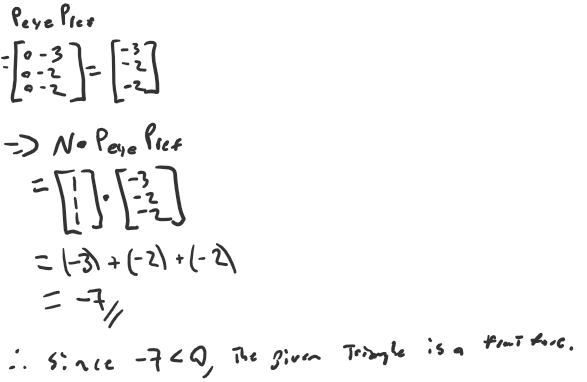 Peye Pref
= [0 -3
0 -2
0 -2] = [-3
-2
-2]
=> N • Peye Pref
= [1
1
1] • [-3
-2
-2]
= (-3) + (-2) + (-2)
= -7 //
∴ Since -7 < 0, The given Triangle is a front face.